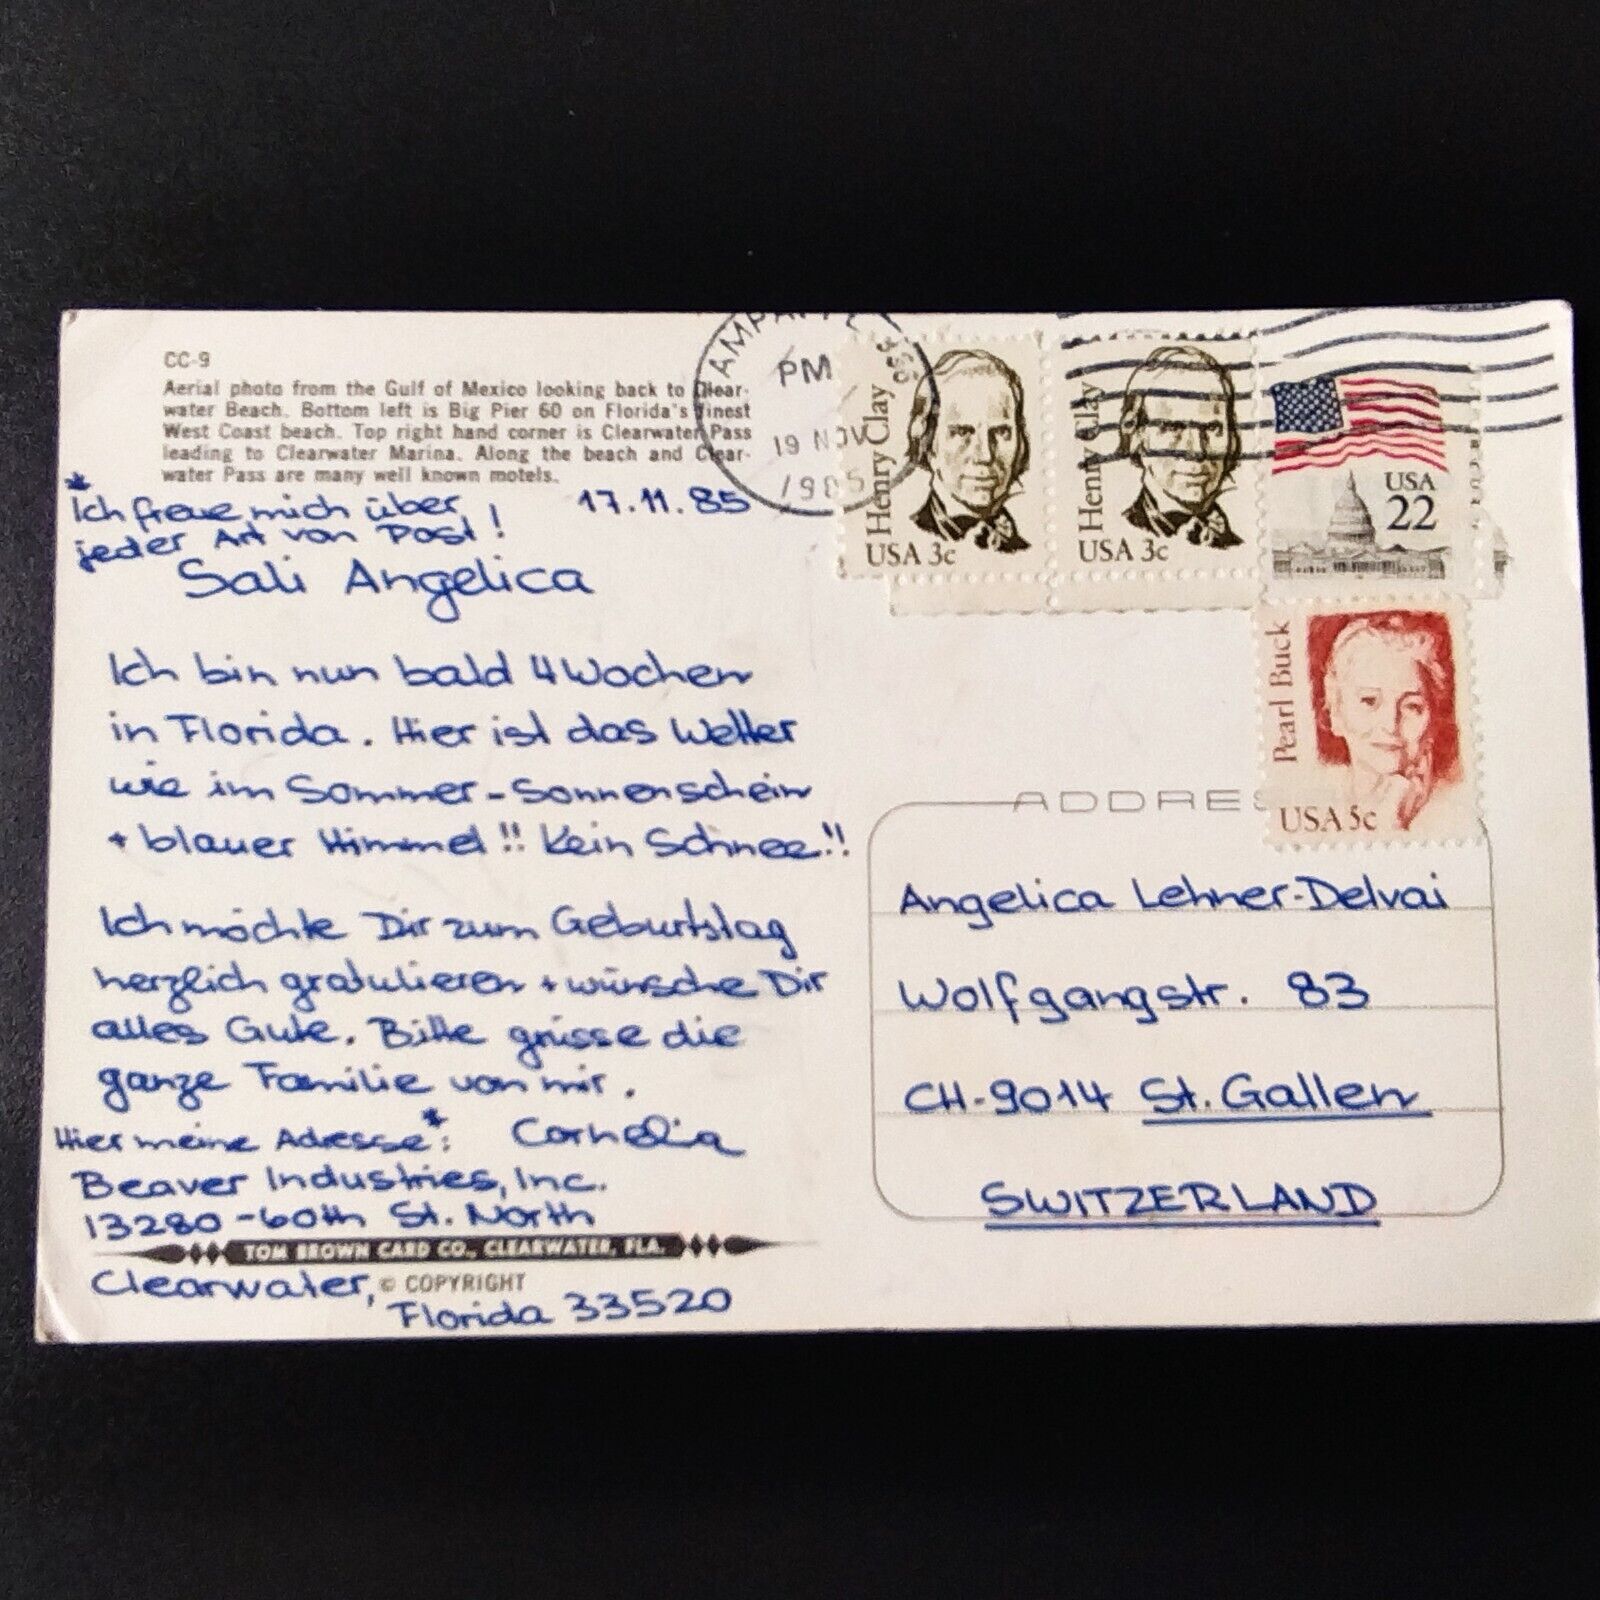 CC-9
Aerial photo from the Gulf of Mexico looking back to Clear-
water Beach. Bottom left is Big Pier 60 on Florida's finest
West Coast beach. Top right hand corner is Clearwater Pass
leading to Clearwater Marina. Along the beach and Clear-
water Pass are many well known motels.
*Ich freue mich über
jeder Art von Post!
17.11.85
Sali Angelica
Ich bin nun bald 4 Wochen
in Florida. Hier ist das Wetter
wie im Sommer - Sonnenschein
+ blauer Himmel!! Kein Schnee!!
Ich möchte Dir zum Geburtstag
herzlich gratulieren + wünsche Dir
alles Gute. Bitte grüsse die
ganze Familie von mir.
Cornelia
Hier meine Adresse*:
Beaver Industries, Inc.
13280-60th St. North
TOM BROWN CARD CO., CLEARWATER, FLA.
© COPYRIGHT
Clearwater,
Florida 33520
PM
19 NOV
1985
Henry Clay
USA 3c
Henry Clay
USA 3c
USA
22
Pearl Buck
USA 5c
ADDRES
Angelica Lehner-Delvai
Wolfgangstr. 83
CH-9014 St. Gallen
SWITZERLAND